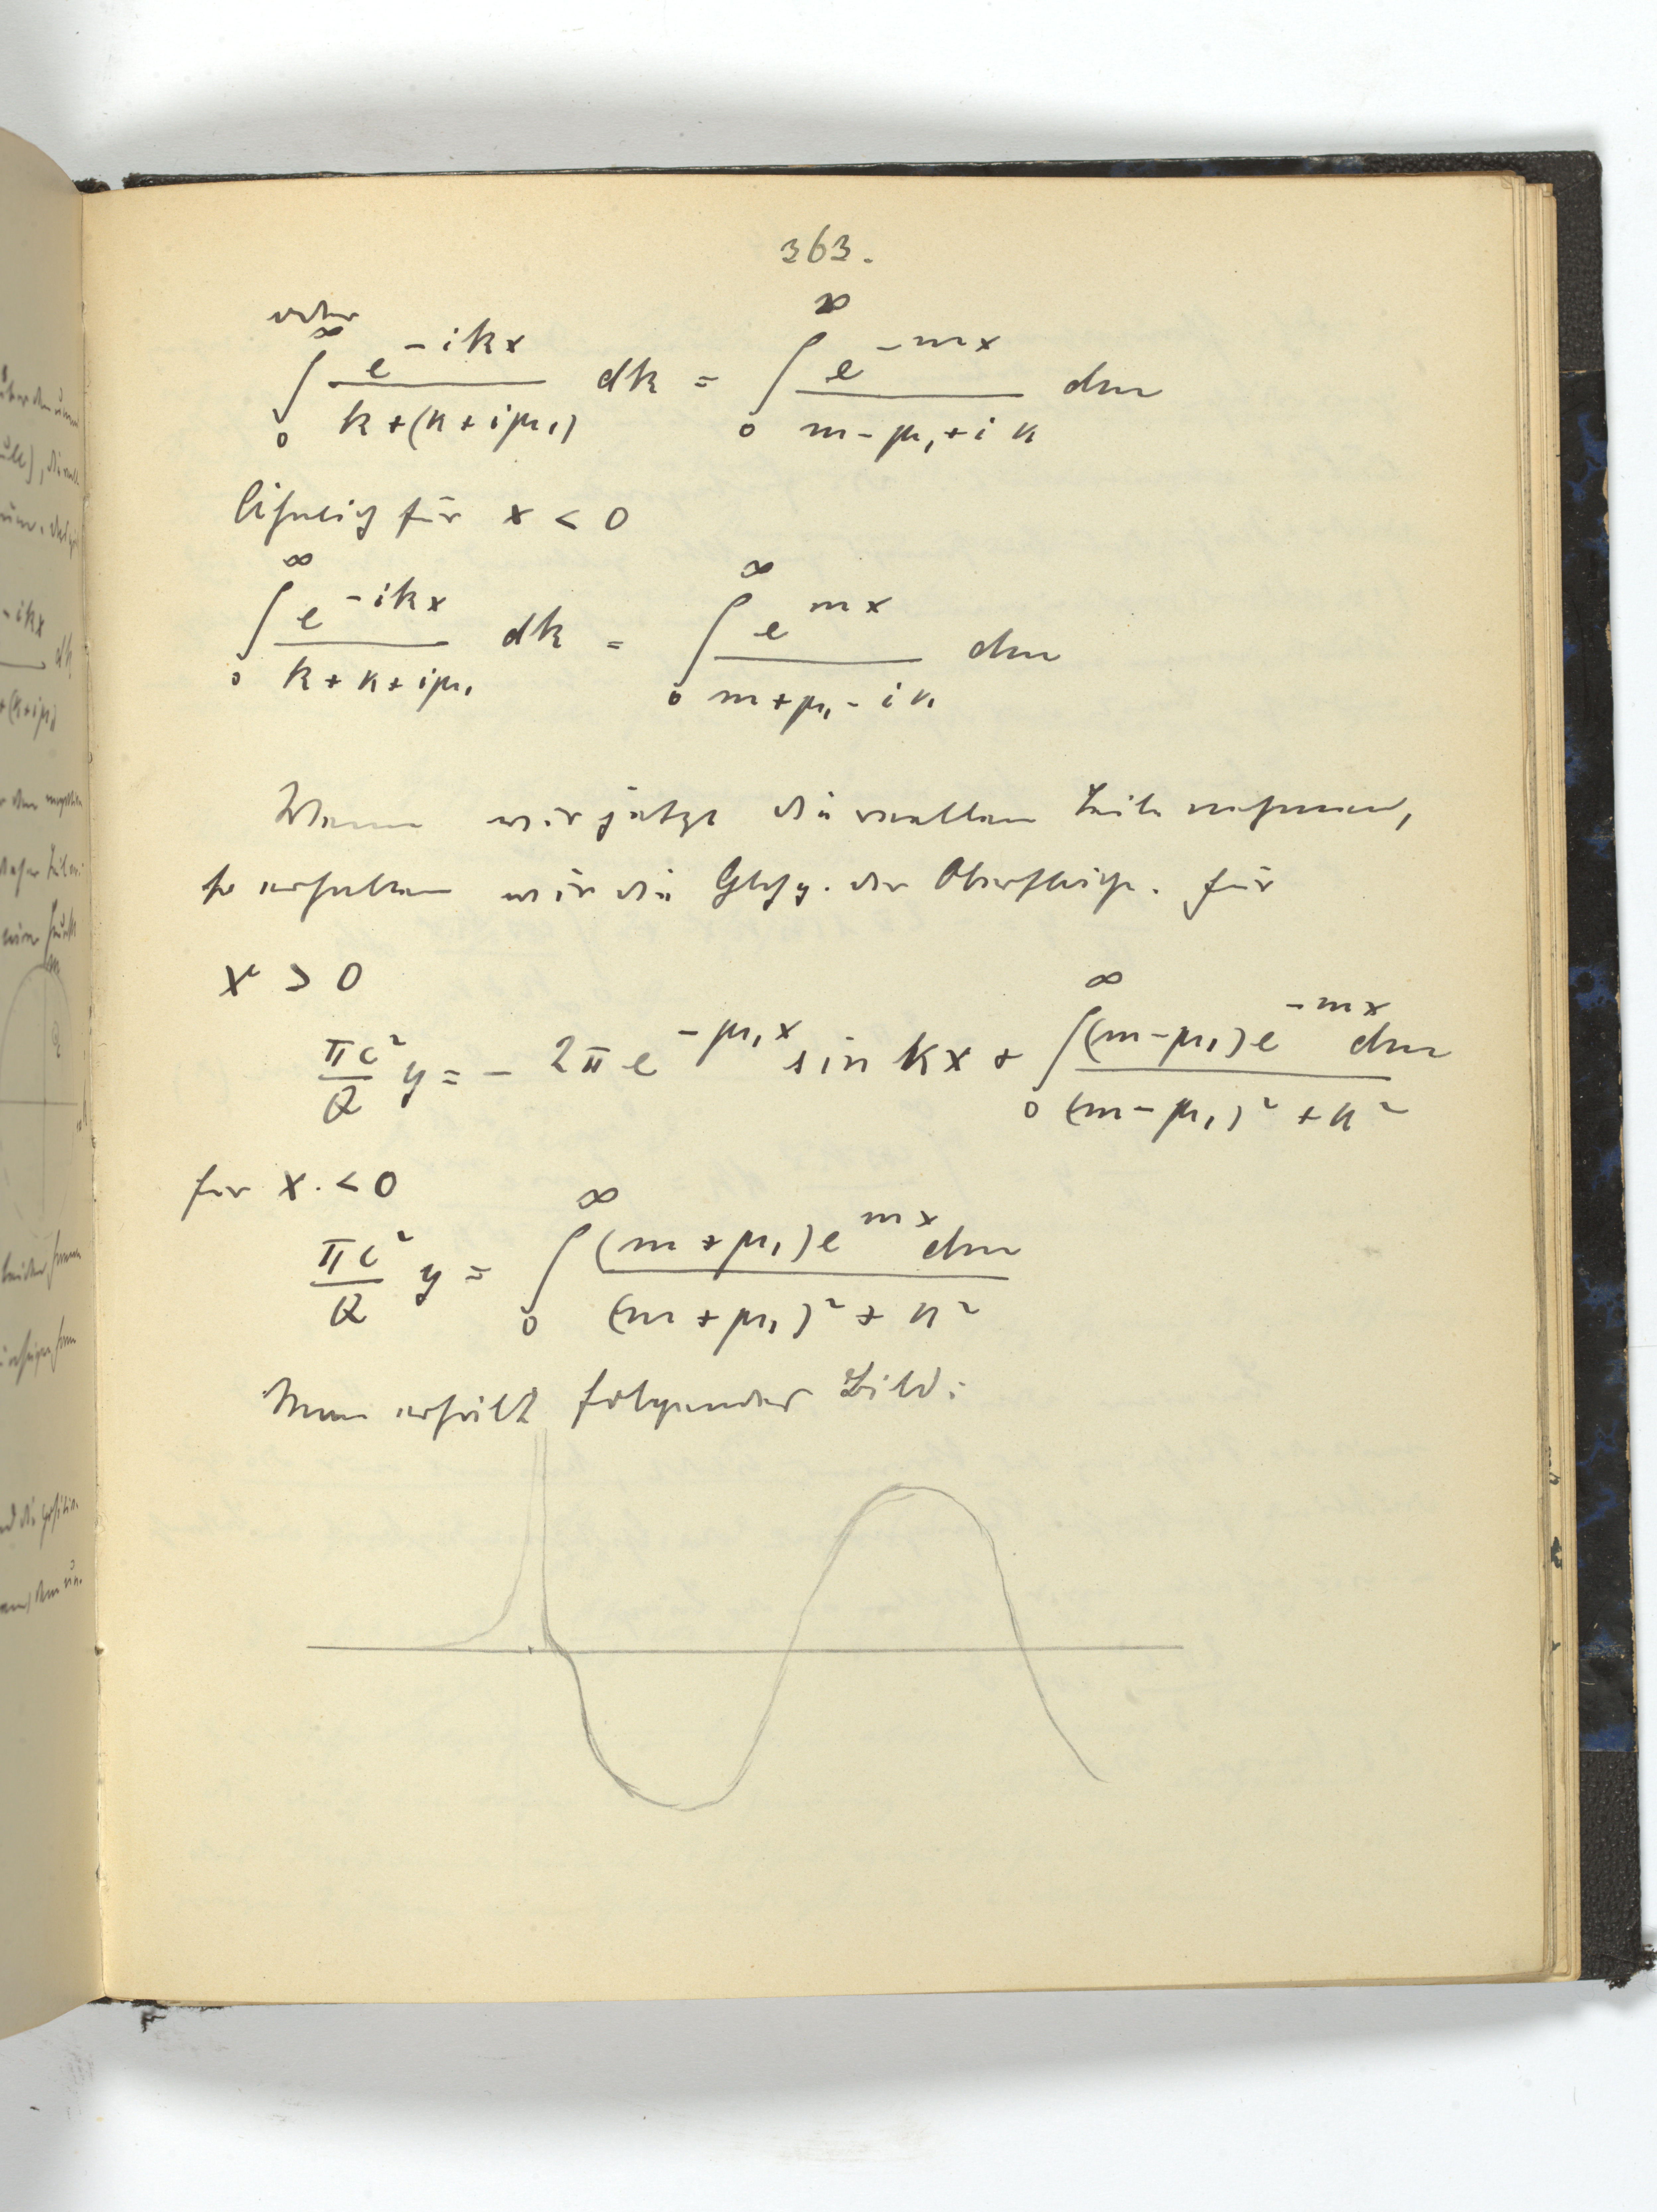 363.
oder
∫₀^∞ e^{-ikx} / (k+(κ+iμ₁)) dk = ∫₀^∞ e^{-mx} / (m-μ₁+iκ) dm
für x < 0
∫₀^∞ e^{-ikx} / (k+κ+iμ₁) dk = ∫₀^∞ e^{mx} / (m+μ₁-iκ) dm
Wenn wir jetzt die reellen Teile nehmen,
so erhalten wir die Glchg. der Oberfläche. für
x > 0
πc²/Q y = - 2π e^{-μ₁x} sin κx + ∫₀^∞ (m-μ₁)e^{-mx} dm / ((m-μ₁)² + κ²)
für x < 0
πc²/Q y = ∫₀^∞ (m+μ₁)e^{mx} dm / ((m+μ₁)² + κ²)
Man erhält folgendes Bild: